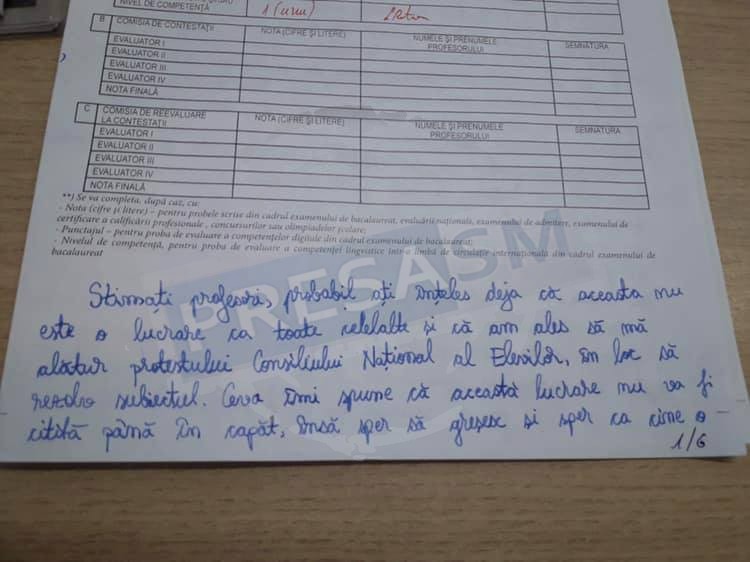 NIVEL DE COMPETENȚĂ
1 (unu)
B COMISIA DE CONTESTAȚII NOTA (CIFRE ȘI LITERE) NUMELE ȘI PRENUMELE PROFESORULUI SEMNĂTURA
EVALUATOR I
EVALUATOR II
EVALUATOR III
EVALUATOR IV
NOTA FINALĂ
C COMISIA DE REEVALUARE LA CONTESTAȚII NOTA (CIFRE ȘI LITERE) NUMELE ȘI PRENUMELE PROFESORULUI SEMNĂTURA
EVALUATOR I
EVALUATOR II
EVALUATOR III
EVALUATOR IV
NOTA FINALĂ
**) Se va completa, după caz, cu:
- Nota (cifre și litere) – pentru probele scrise din cadrul examenului de bacalaureat, evaluării naționale, examenului de admitere, examenului de
certificare a calificării profesionale, concursurilor sau olimpiadelor școlare;
- Punctajul – pentru proba de evaluare a competențelor digitale din cadrul examenului de bacalaureat;
- Nivelul de competență, pentru proba de evaluare a competenței lingvistice într-o limbă de circulație internațională din cadrul examenului de
bacalaureat
PRESASM
Stimați profesori, probabil ați înțeles deja că aceasta nu
este o lucrare ca toate celelalte și că am ales să mă
alătur protestului Consiliului Național al Elevilor, în loc să
rezolv subiectul. Ceva îmi spune că această lucrare nu va fi
citită până în capăt, însă sper să greșesc și sper ca cine o
1/6